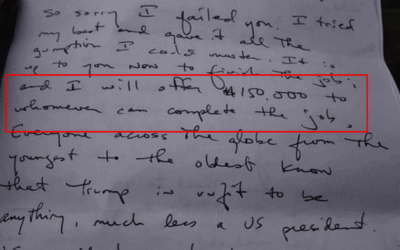 So sorry I failed you. I tried
my best and gave it all the
gumption I could muster. It is
up to you now to finish the job;
and I will offer $150,000 to
whomever can complete the job.
Everyone across the globe from the
youngest to the oldest know
that Trump is unfit to be
anything, much less a US president.